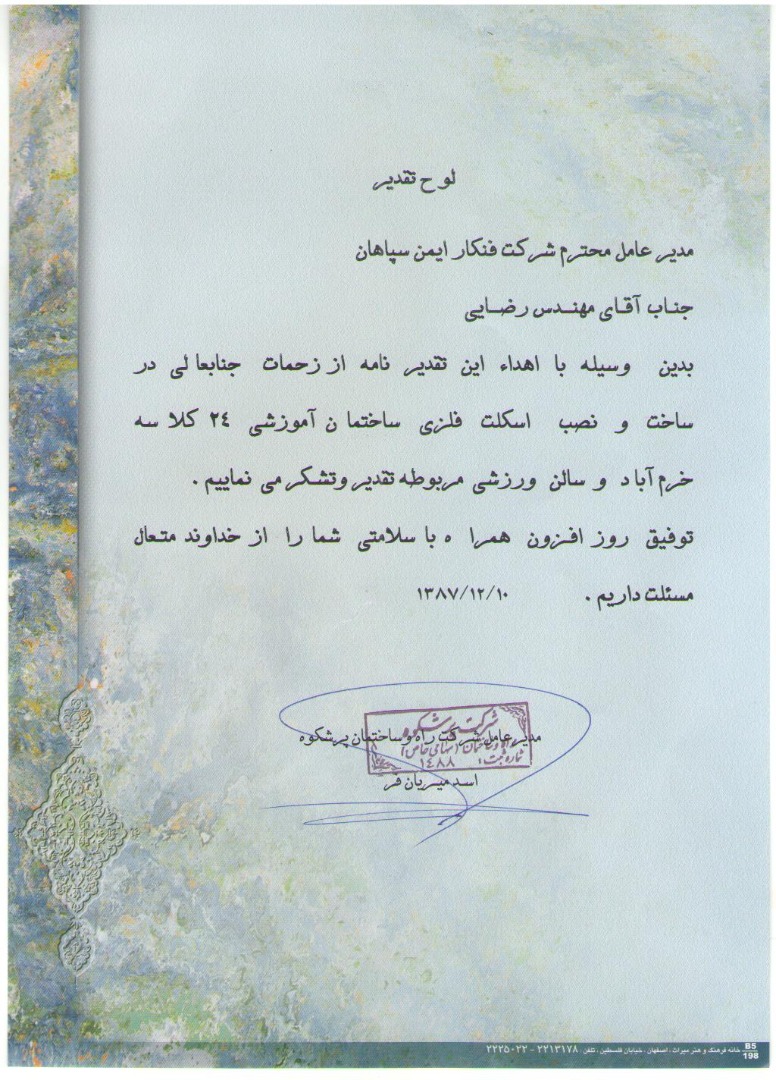 لوح تقدیر
مدیر عامل محترم شرکت فنکار ایمن سپاهان
جناب آقای مهندس رضایی
بدین وسیله با اهداء این تقدیر نامه از زحمات جنابعالی در
ساخت و نصب اسکلت فلزی ساختمان آموزشی ٢٤ کلاسه
خرم آباد و سالن ورزشی مربوطه تقدیر وتشکر می نماییم .
توفیق روز افزون همراه با سلامتی شما را از خداوند متعال
مسئلت داریم . ١٣٨٧/١٢/١٠
شرکت پرشکوه
مدیر عامل شرکت راه وساختمان پرشکوه
راه و ساختمان (سهامی خاص)
شماره ثبت: ١٤٨٨
اسد میریان فر
خانه فرهنگ و هنر میراث ، اصفهان ، خیابان فلسطین ، تلفن : ٢٢١٣١٧٨ - ٢٢٢٥٠٢٢
B5
198